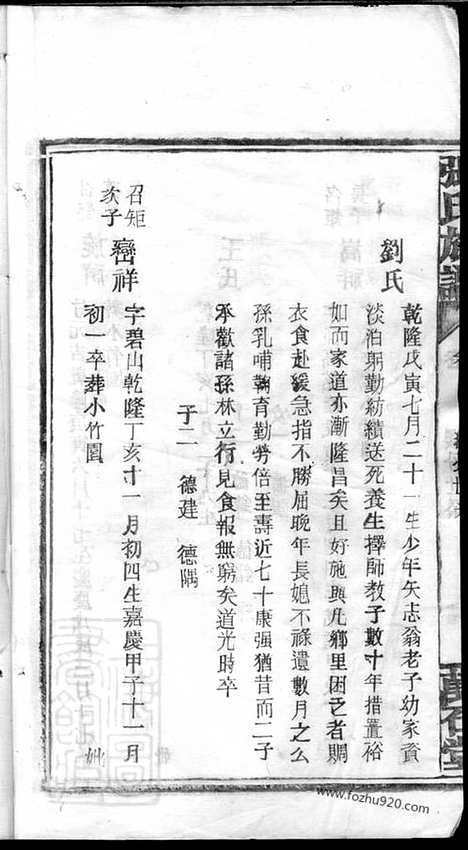 張氏族譜
劉氏
乾隆戊寅七月二十一生少年矢志翁老子幼家資
淡泊躬勤紡績送死養生擇師教子數十年措置裕
如而家道亦漸隆昌矣且好施與凡鄉里困乏者賙
衣食赴緩急指不勝屈晚年長媳不祿遺數月之么
孫乳哺鞠育勤勞倍至壽近七十康强猶昔而二子
承歡諸孫林立行見食報無窮矣道光時卒
子二 德建 德隅
召矩
次子
巒祥
字碧山乾隆丁亥十一月初四生嘉慶甲子十一月
初一卒葬小竹園
www.fozhu920.com